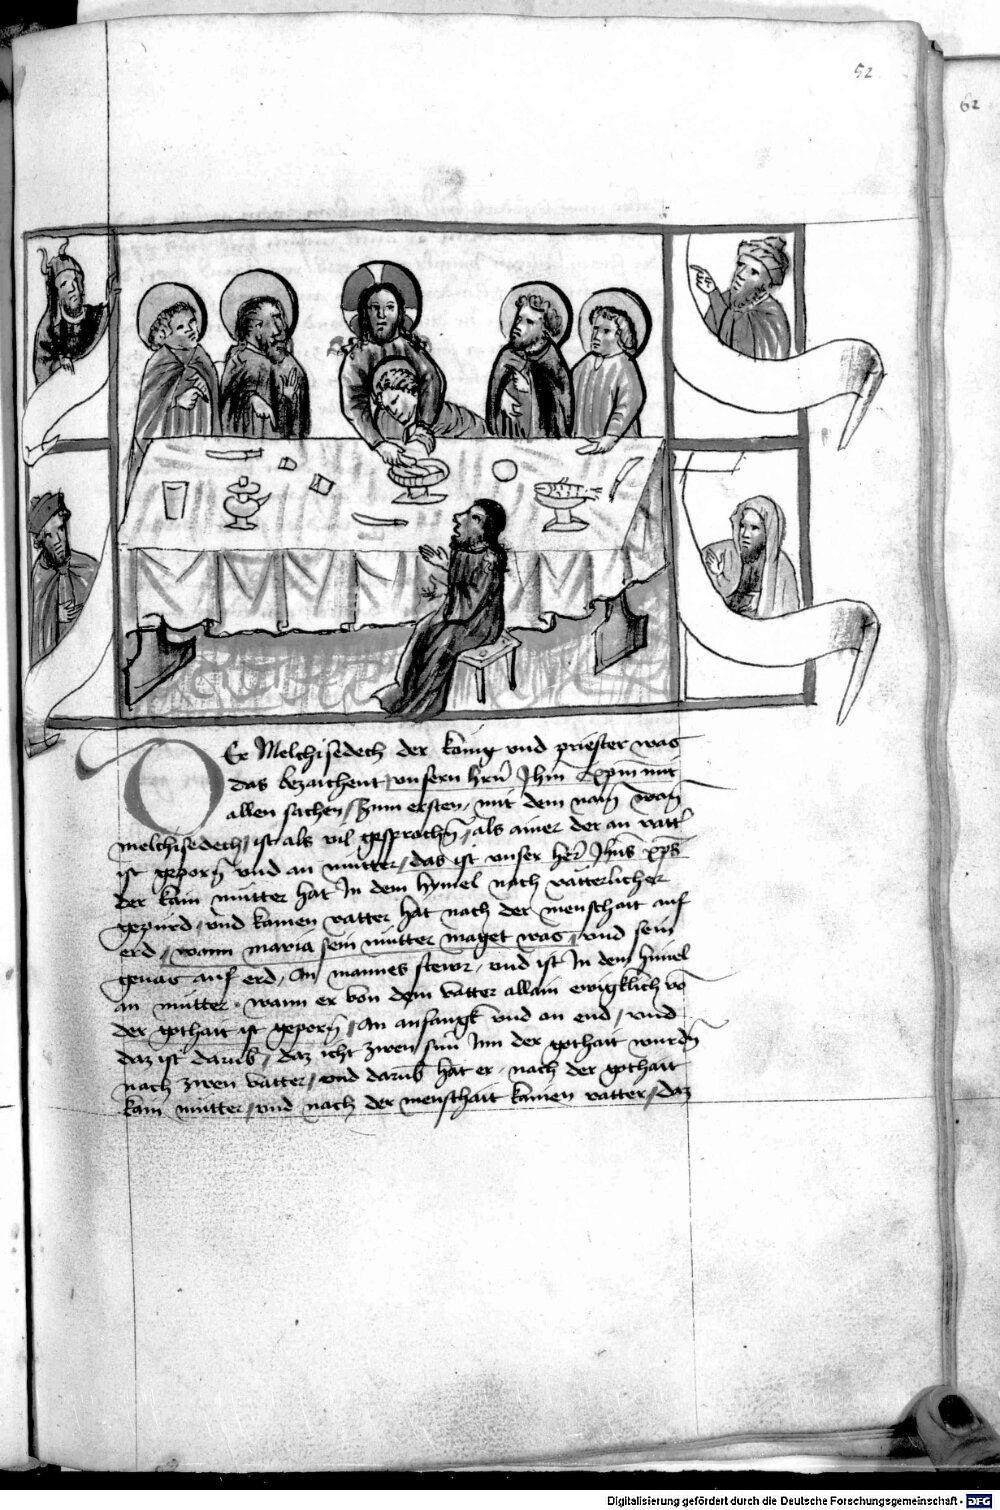 52
62
DEr Melchisedech der konig vnd priester was
das bezaichent vnsern hrñ Jhm̄ xpm̄ mit
allen sachen / Zum ersten / mit dem nam̄ wañ
melchisedech / ist als vil gesprochñ / als ainer der an vattˀ
ist geporñ vnd an mutter / das ist vnser her̄ Jhūs xp̄s
der kain mutter hat Jn dem hymel nach vatterlicher
gepurd / vnd kainen vatter hat nach der menschait auf
erd / wann maria sein mutter maget was / vnd sein
genas auf erd / an mannes stewr / vnd ist Jn dem himel
an mutter / wann er von dem vatter allain ewigklich vō
der gothait ist geporñ / An anfangk vnd an end / vnd
daz ist darub̄ / daz icht zwen sun Jnn der gothait wurdñ
nach zwen vatter / vnd darub̄ hat er / nach der gothait
kain mutter / vnd nach der menschait kainen vatter / daz
Digitalisierung gefördert durch die Deutsche Forschungsgemeinschaft - DFG